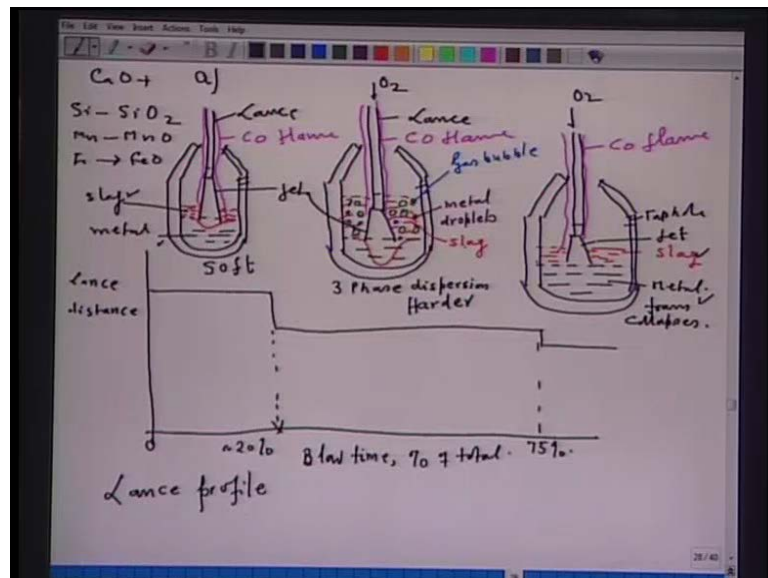 File Edit View Insert Actions Tools Help
CaO+ a)
Si - SiO2
Mn - MnO
Fe → FeO
slag
metal
Lance
CO flame
jet
Soft
O2
Lance
CO flame
Gas bubble
metal
droplets
slag
3 Phase dispersion
Harder
O2
CO flame
Taphole
Jet
slag
Metal.
foam
Collapses.
Lance
distance
0
~20%
Blow time, % of total.
75%.
Lance profile
28/40